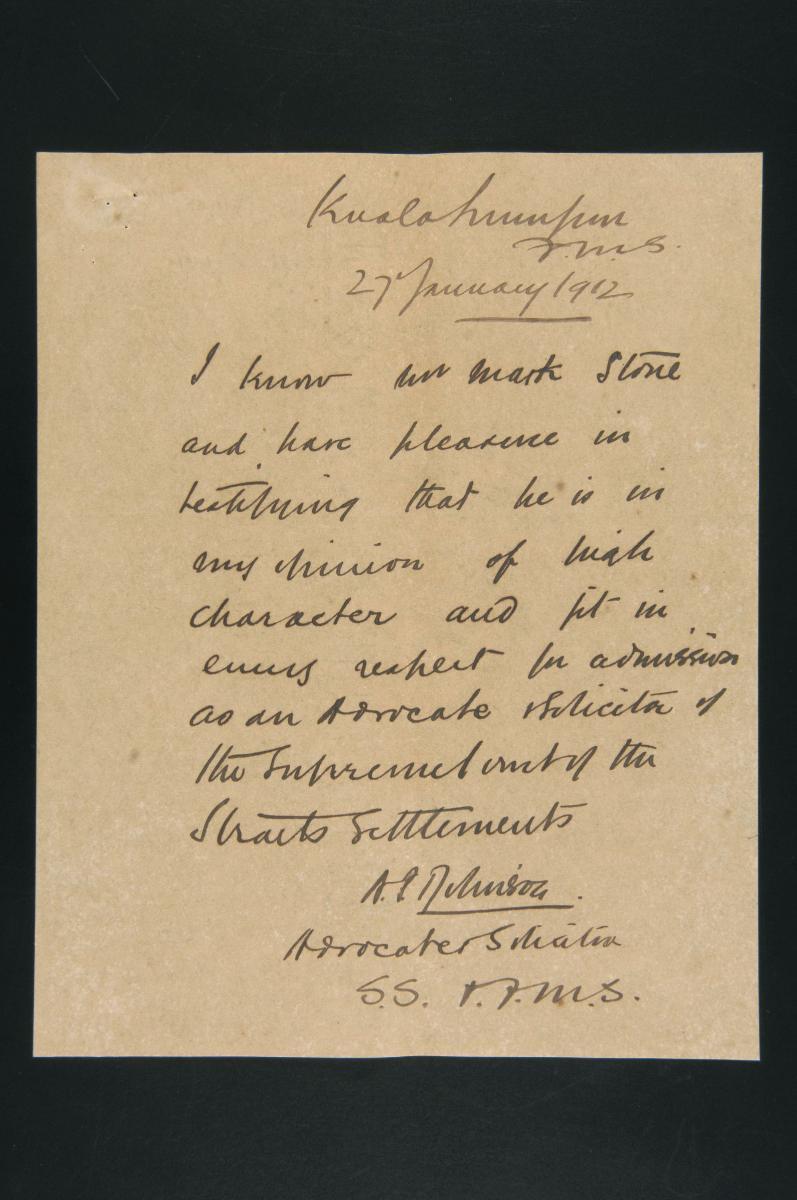 Kuala Lumpur
F.M.S.
27 January 1912
I know Mr Mark Stone
and have pleasure in
testifying that he is in
my opinion of high
character and fit in
every respect for admission
as an Advocate & Solicitor of
the Supreme Court of the
Straits Settlements
Robinson.
Advocate & Solicitor
S.S. & F.M.S.